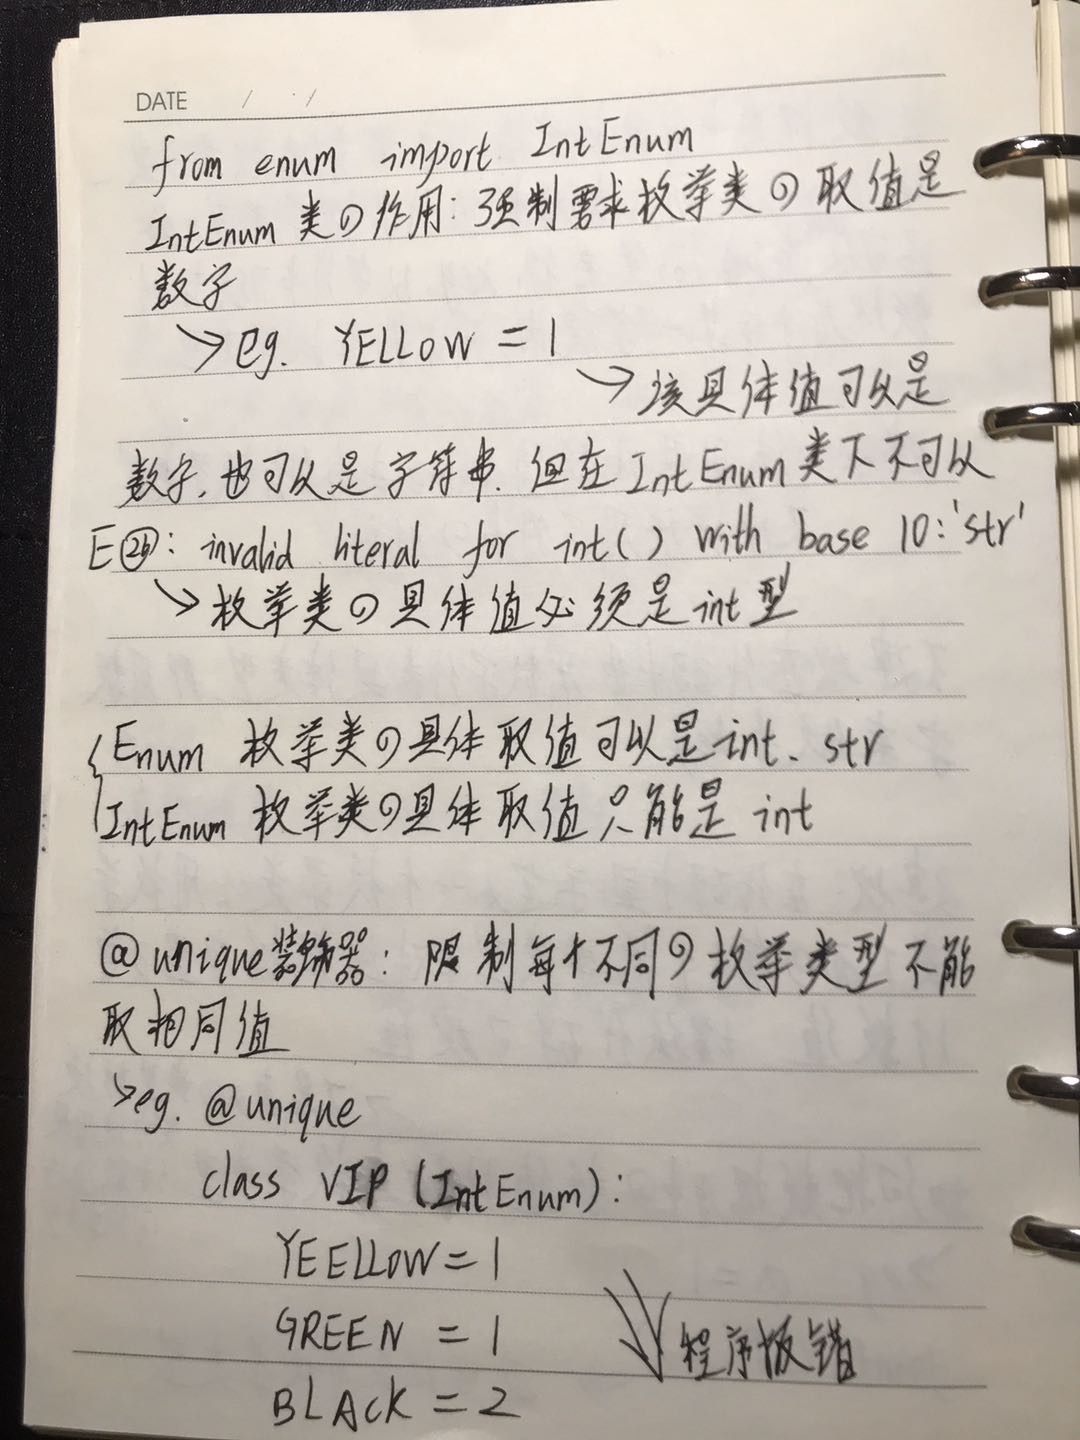 DATE / /
from enum import IntEnum
IntEnum 类の作用:强制要求枚举类の取值是
数字
↘eg. YELLOW = 1
↘该具体值可以是
数字,也可以是字符串.但在IntEnum类下不可以
E㉖: invalid literal for int() with base 10:'str'
↘枚举类の具体值必须是int型
{Enum 枚举类の具体取值可以是int、str
IntEnum 枚举类の具体取值只能是 int
@unique装饰器:限制每个不同の枚举类型不能
取相同值
↘eg. @unique
class VIP (IntEnum):
YEELLOW = 1
GREEN = 1
程序报错
BLACK = 2